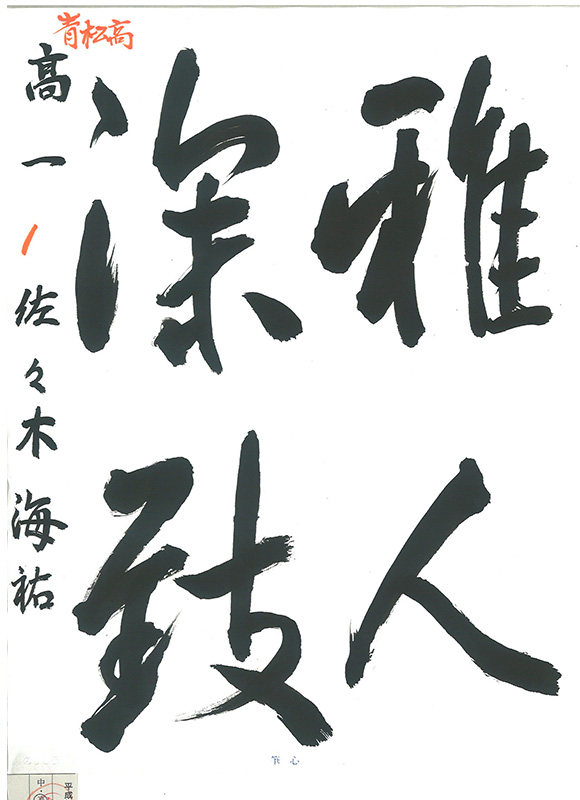 雅人
深致
青松高
高一 佐々木海祐
心筆
平成
中